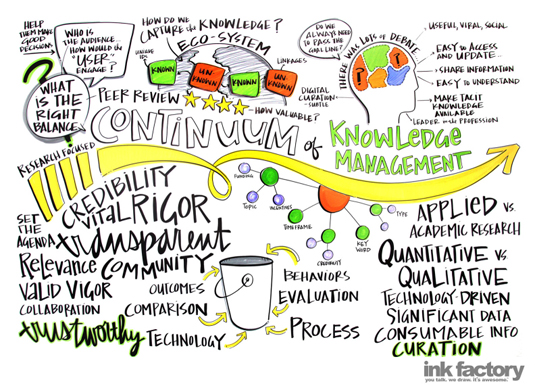 HELP
THEM MAKE
GOOD
DECISIONS
WHO IS
THE AUDIENCE...
HOW WOULD THE
"USER"
ENGAGE?
WHAT
IS THE
RIGHT
BALANCE?
HOW DO WE
CAPTURE THE KNOWLEDGE?
ECO-SYSTEM
LINKAGES
KNOWN
UN
KNOWN
KNOWN
UN
KNOWN
PEER REVIEW
HOW VALUABLE?
DO WE
ALWAYS NEED
TO PASS THE
GOAL LINE?
THERE WAS LOTS OF DEBATE
DIGITAL
CURATION
USEFUL, VIRAL, SOCIAL
EASY TO ACCESS
AND UPDATE...
SHARE INFORMATION
EASY TO UNDERSTAND
MAKE TACIT
KNOWLEDGE
AVAILABLE
LEADER IN THE PROFESSION
CONTINUUM of KNOWLEDGE
MANAGEMENT
RESEARCH FOCUSED
SET
THE
AGENDA
CREDIBILITY
VITAL RIGOR
transparent
Relevance COMMUNITY
VALID VIGOR
COLLABORATION
trustworthy
OUTCOMES
COMPARISON
TECHNOLOGY
BEHAVIORS
EVALUATION
PROCESS
FUNDING
TOPIC
INITIATIVES
TIMEFRAME
CREDIBILITY
KEY
WORD
TYPE
APPLIED vs.
ACADEMIC RESEARCH
QUANTITATIVE vs
QUALITATIVE
TECHNOLOGY-DRIVEN
SIGNIFICANT DATA
CONSUMABLE INFO
CURATION
ink factory
you talk. we draw. it's awesome.